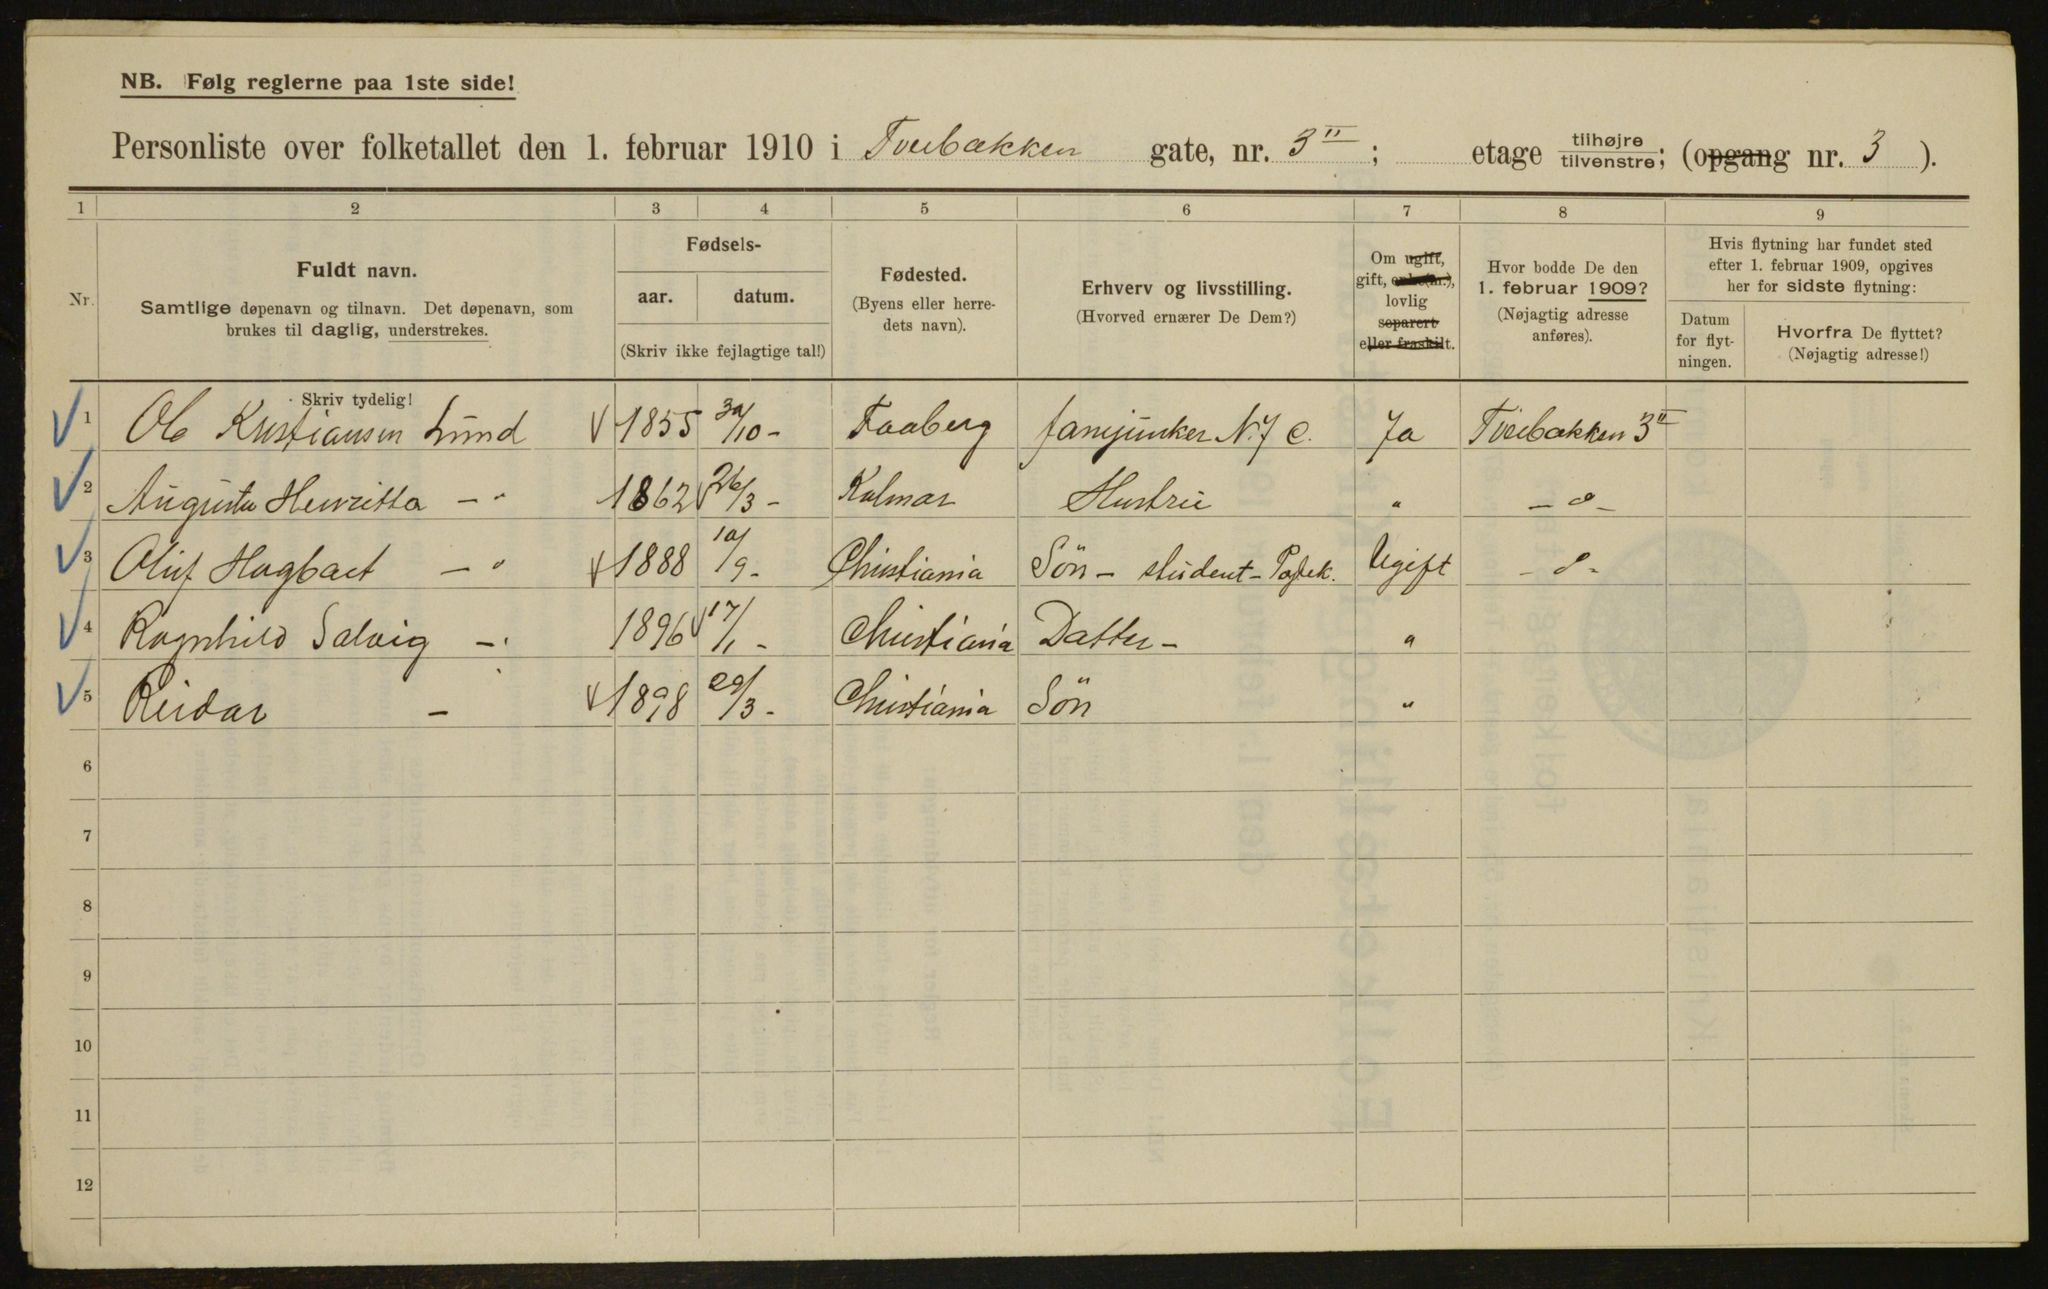 NB. Følg reglerne paa 1ste side!
Personliste over folketallet den 1. februar 1910 i Tverbakken gate, nr. 3 II; etage tilhøjre tilvenstre; (opgang nr. 3).
1 2 3 4 5 6 7 8 9
Nr.
Fuldt navn.
Samtlige døpenavn og tilnavn. Det døpenavn, som
brukes til daglig, understrekes.
Fødsels-
aar. datum.
(Skriv ikke fejlagtige tal!)
Fødested.
(Byens eller herre-
dets navn).
Erhverv og livsstilling.
(Hvorved ernærer De Dem?)
Om ugift,
gift, enke(m.),
lovlig
separert
eller fraskilt.
Hvor bodde De den
1. februar 1909?
(Nøjagtig adresse
anføres).
Hvis flytning har fundet sted
efter 1. februar 1909, opgives
her for sidste flytning:
Datum
for flyt-
ningen.
Hvorfra De flyttet?
(Nøjagtig adresse!)
Skriv tydelig!
1 Ole Kristiansen Lund 1855 30/10 - Faaberg fanejunker N. J. C. Ja Tverbakken 3 II
2 Augusta Henritta - " 1862 26/3 - Kalmar Hustru " - " -
3 Oluf Hagbart - " 1888 10/9 - Christiania Søn - student - Ugift - " -
4 Ragnhild Solveig - " 1896 17/1 - Christiania Datter - "
5 Reidar - 1898 29/3 - Christiania Søn "
6
7
8
9
10
11
12